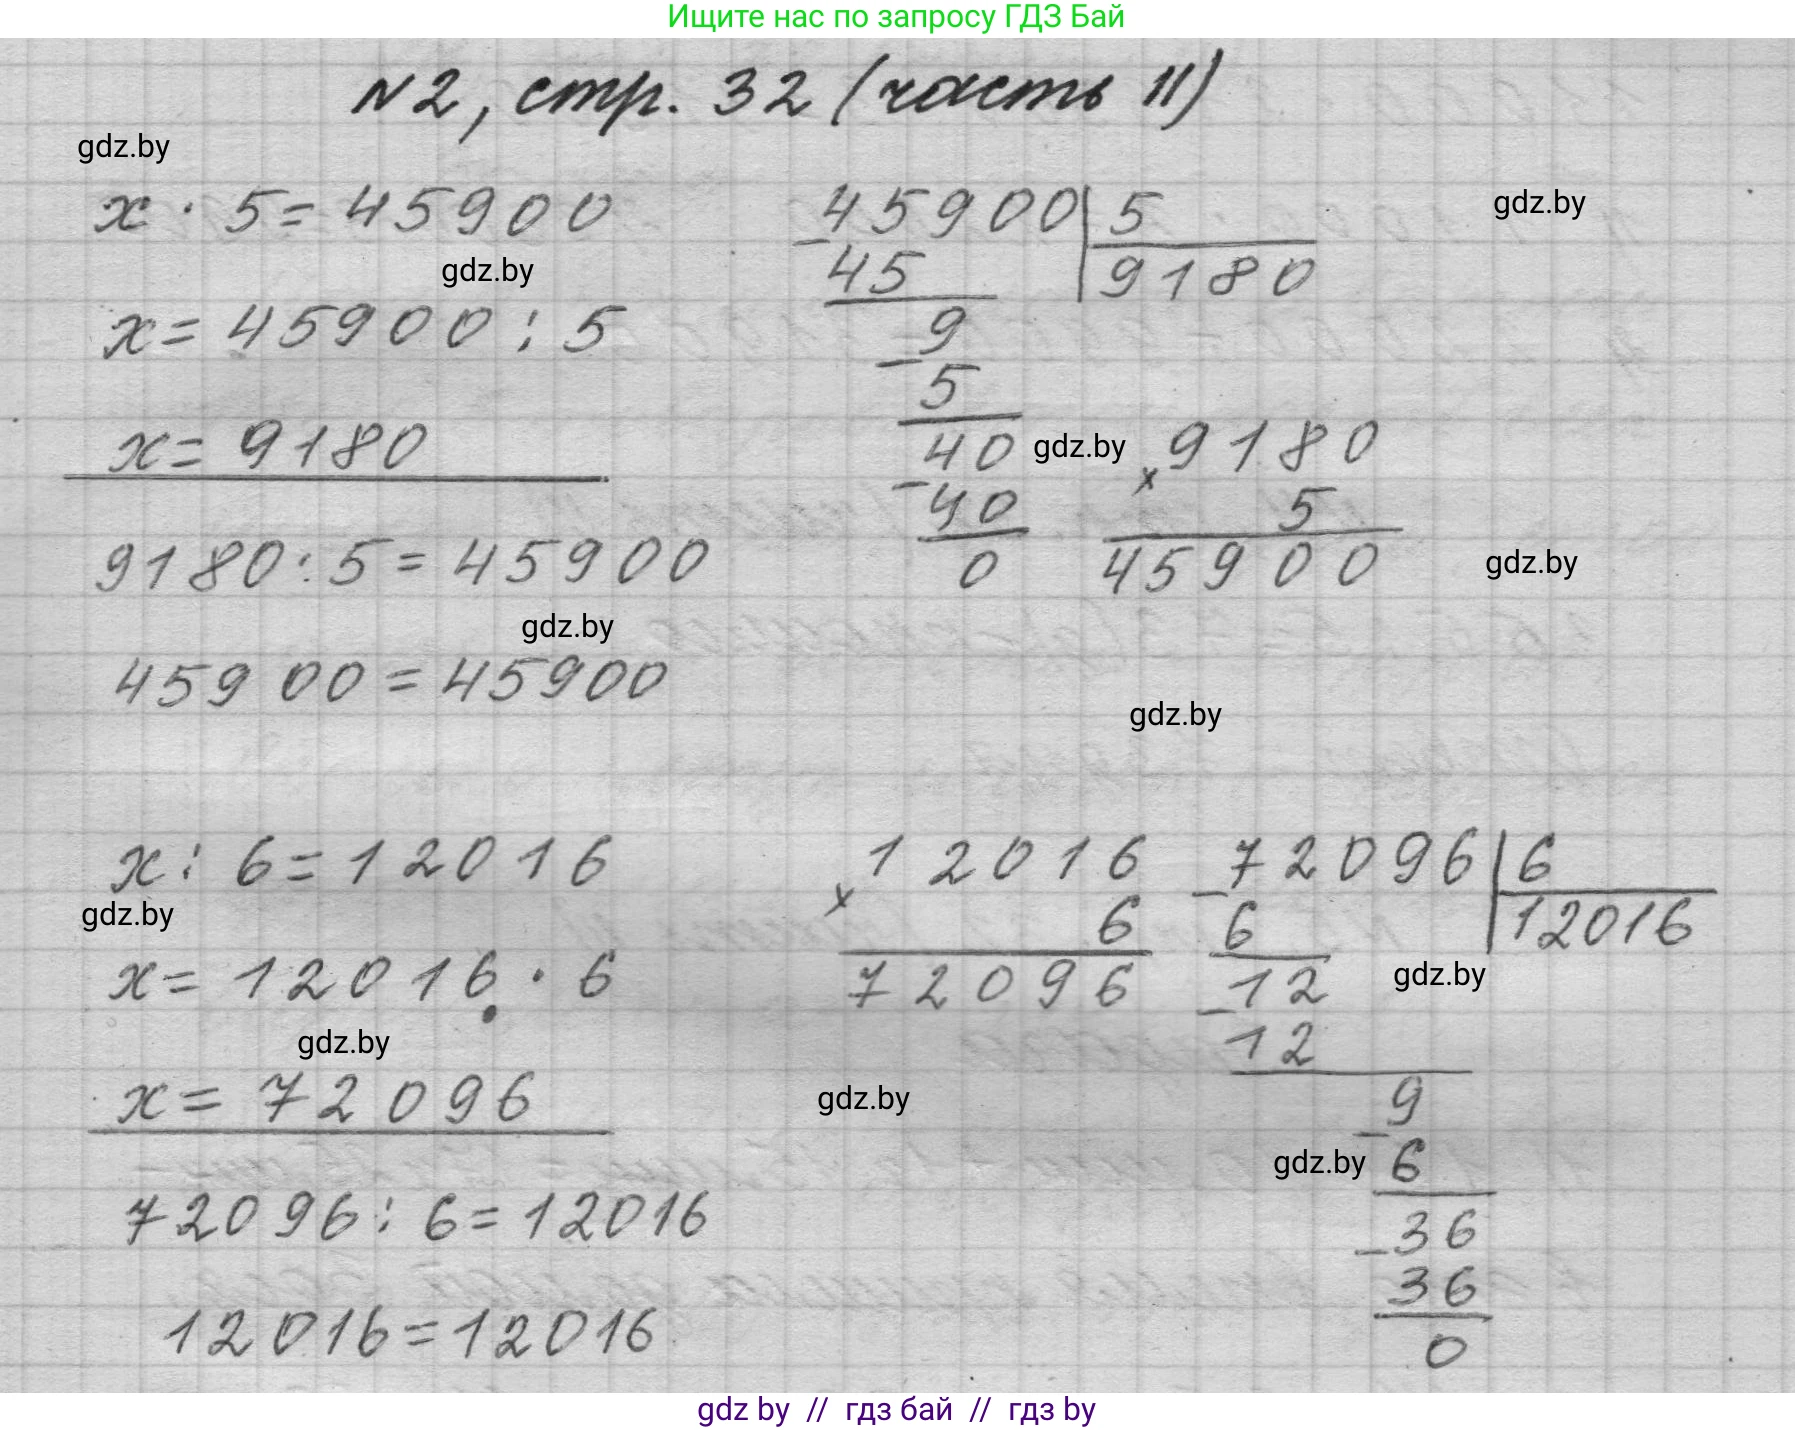 Ищите нас по запросу ГДЗ Бай
№2, стр. 32 (часть II)
gdz.by
x · 5 = 45900
gdz.by
x = 45900 : 5
x = 9180
9180 : 5 = 45900
gdz.by
45900 = 45900
45900 | 5
− 45
9180
9
− 5
40
− 40
0
gdz.by
gdz.by
9180
× 5
45900
gdz.by
gdz.by
x : 6 = 12016
gdz.by
x = 12016 · 6
gdz.by
x = 72096
72096 : 6 = 12016
12016 = 12016
12016
× 6
72096
gdz.by
72096 | 6
− 6
12016
12
− 12
gdz.by
9
− 6
gdz.by
36
− 36
0
gdz by // гдз бай // гдз by